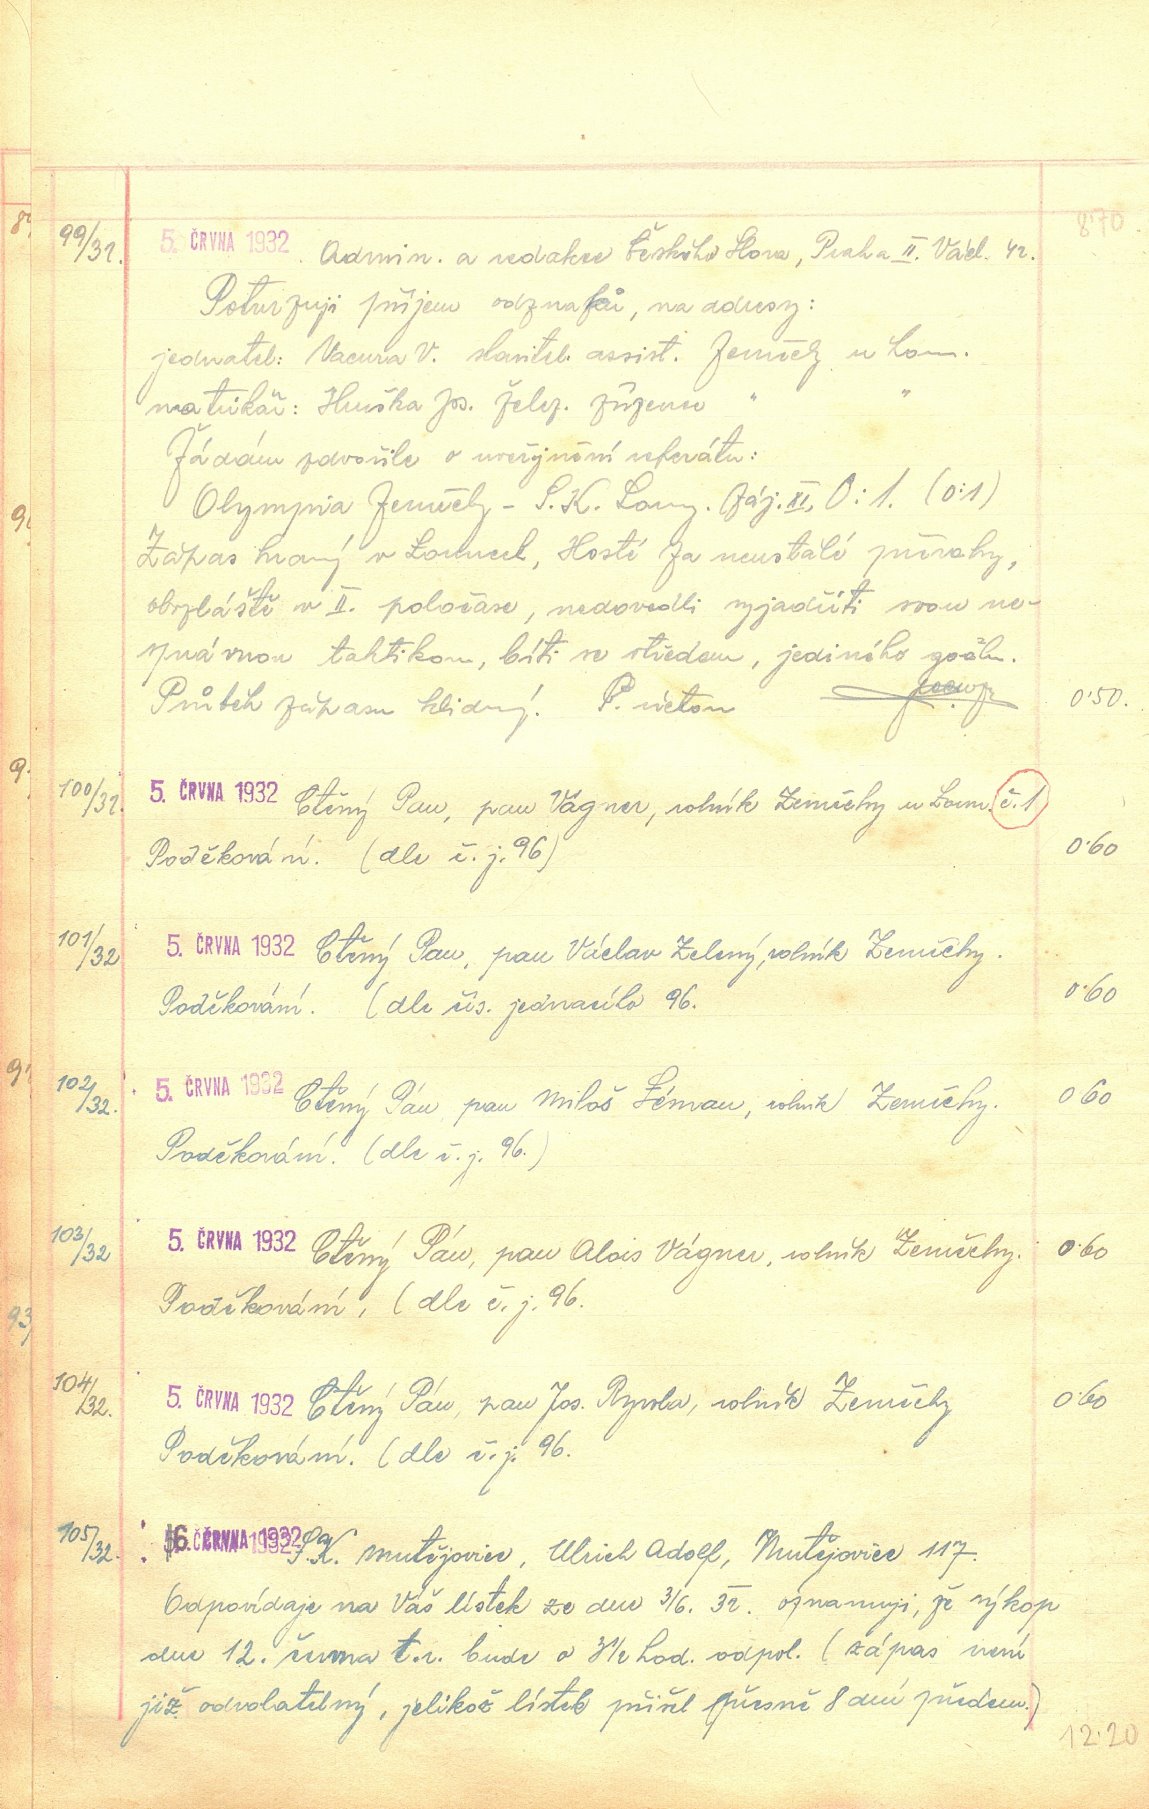 8·70
99/32. 5. ČRVNA 1932 Admin. a redakce Českého Slova, Praha II. Václ. 42.
Potvrzuji příjem odznaků, na adresy:
jednatel: Vacura V. stavitel. assist. Zeměchy u Loun.
matrikář: Hruška Jos. želez. zřízenec " "
Žádám zdvořile o uveřejnění referátu:
Olympia Zeměchy - S.K. Louny. Záj. XI. 0:1. (0:1)
Zápas hraný v Lounech, Hosté za neustálé převahy,
obzláště v II. poločase, nedovedli vyjádřiti svou ne-
správnou taktikou, bíti se středem, jediného goálu.
Průběh zápasu klidný! P. úctou 0·50.
100/32. 5. ČRVNA 1932 Ctěný Pan, pan Vágner, rolník Zeměchy u Loun. č.1
Poděkování. (dle č. j. 96) 0·60
101/32 5. ČRVNA 1932 Ctěný Pan, pan Václav Zelený, rolník Zeměchy.
Poděkování. (dle čís. jednacího 96. 0·60
102/32. 5. ČRVNA 1932 Ctěný Pán pan Miloš Zéman, rolník Zeměchy. 0 60
Poděkování. (dle č. j. 96.)
103/32 5. ČRVNA 1932 Ctěný Pán, pan Alois Vágner, rolník Zeměchy. 0·60
Poděkování, (dle č. j. 96.
104/32. 5. ČRVNA 1932 Ctěný Pán, pan Jos. rolník Zeměchy 0·60
Poděkování. (dle č. j. 96.
105/32. 6. ČRVNA 1932 S.K. Mutějovice, Ulrich Adolf, Mutějovice 117.
Odpovídaje na Váš lístek ze dne 3/6. 32. oznamuji, že výkop
dne 12. června t.r. bude o 3 1/2 hod. odpol. (zápas není
již odvolatelný, jelikož lístek přišel přesně 8 dní předem.)
12·20